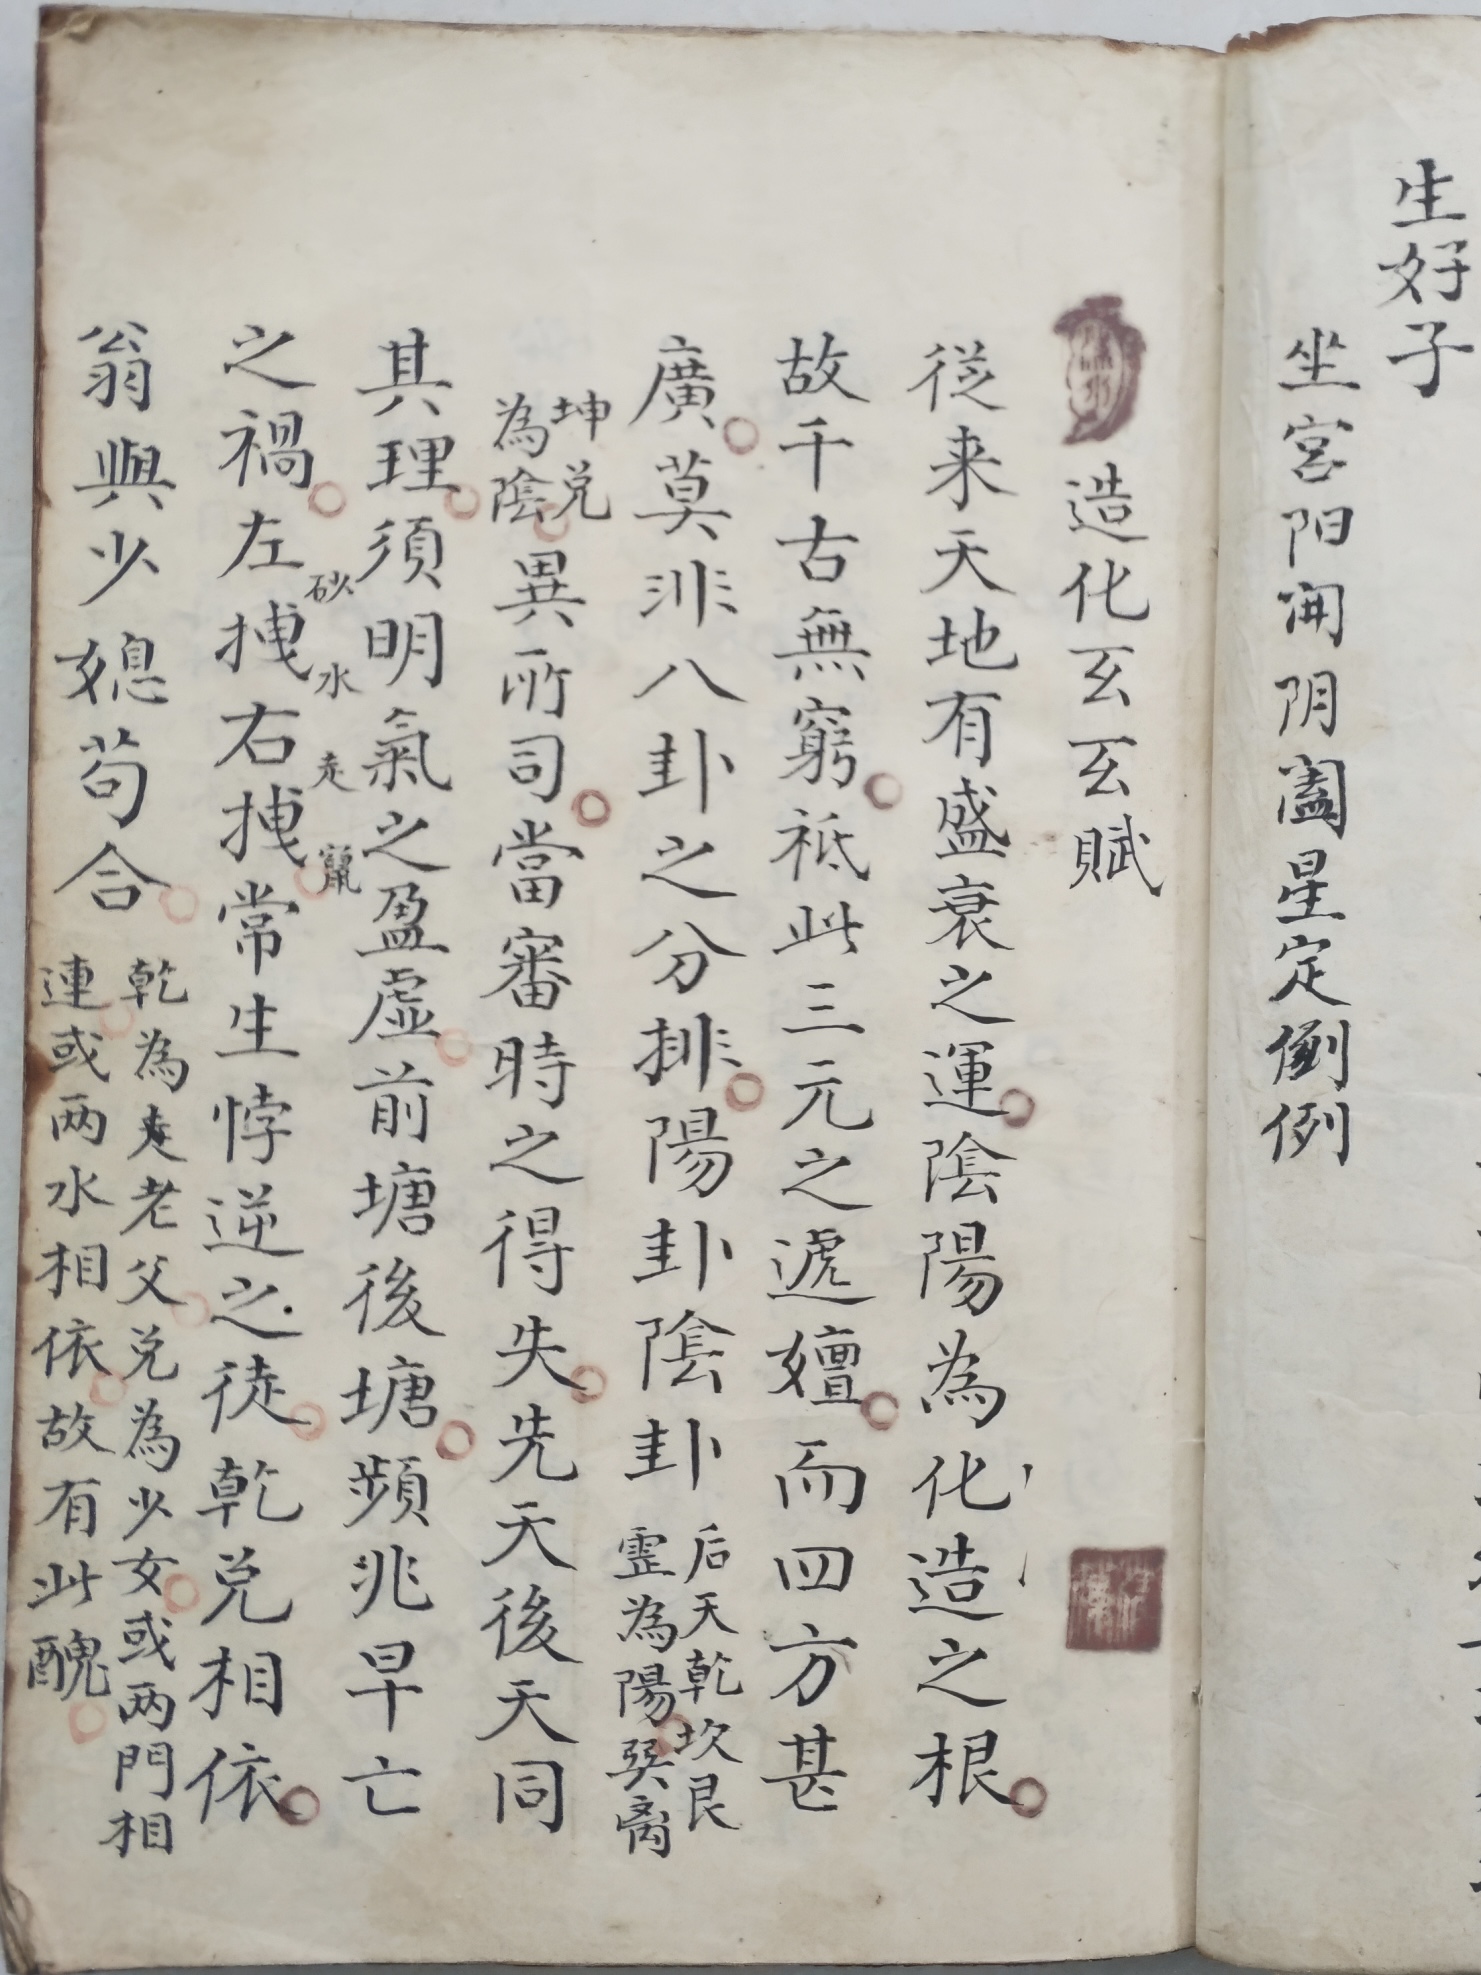 生好子
坐宮阳闲阴闔星定倒例
造化玄玄賦
從来天地有盛衰之運陰陽為化造之根
故千古無窮祗此三元之遞嬗而四方甚
廣莫非八卦之分排陽卦陰卦后天乾坎艮
霊為陽巽离
坤兑
為陰異所司當審時之得失先天後天同
其理須明氣之盈虛前塘後塘頻兆早亡
之禍左拽右拽常生悖逆之徒乾兑相依
砂水
翁與少媳苟合乾為老父兑為少女或两門相
連或两水相依故有此醜